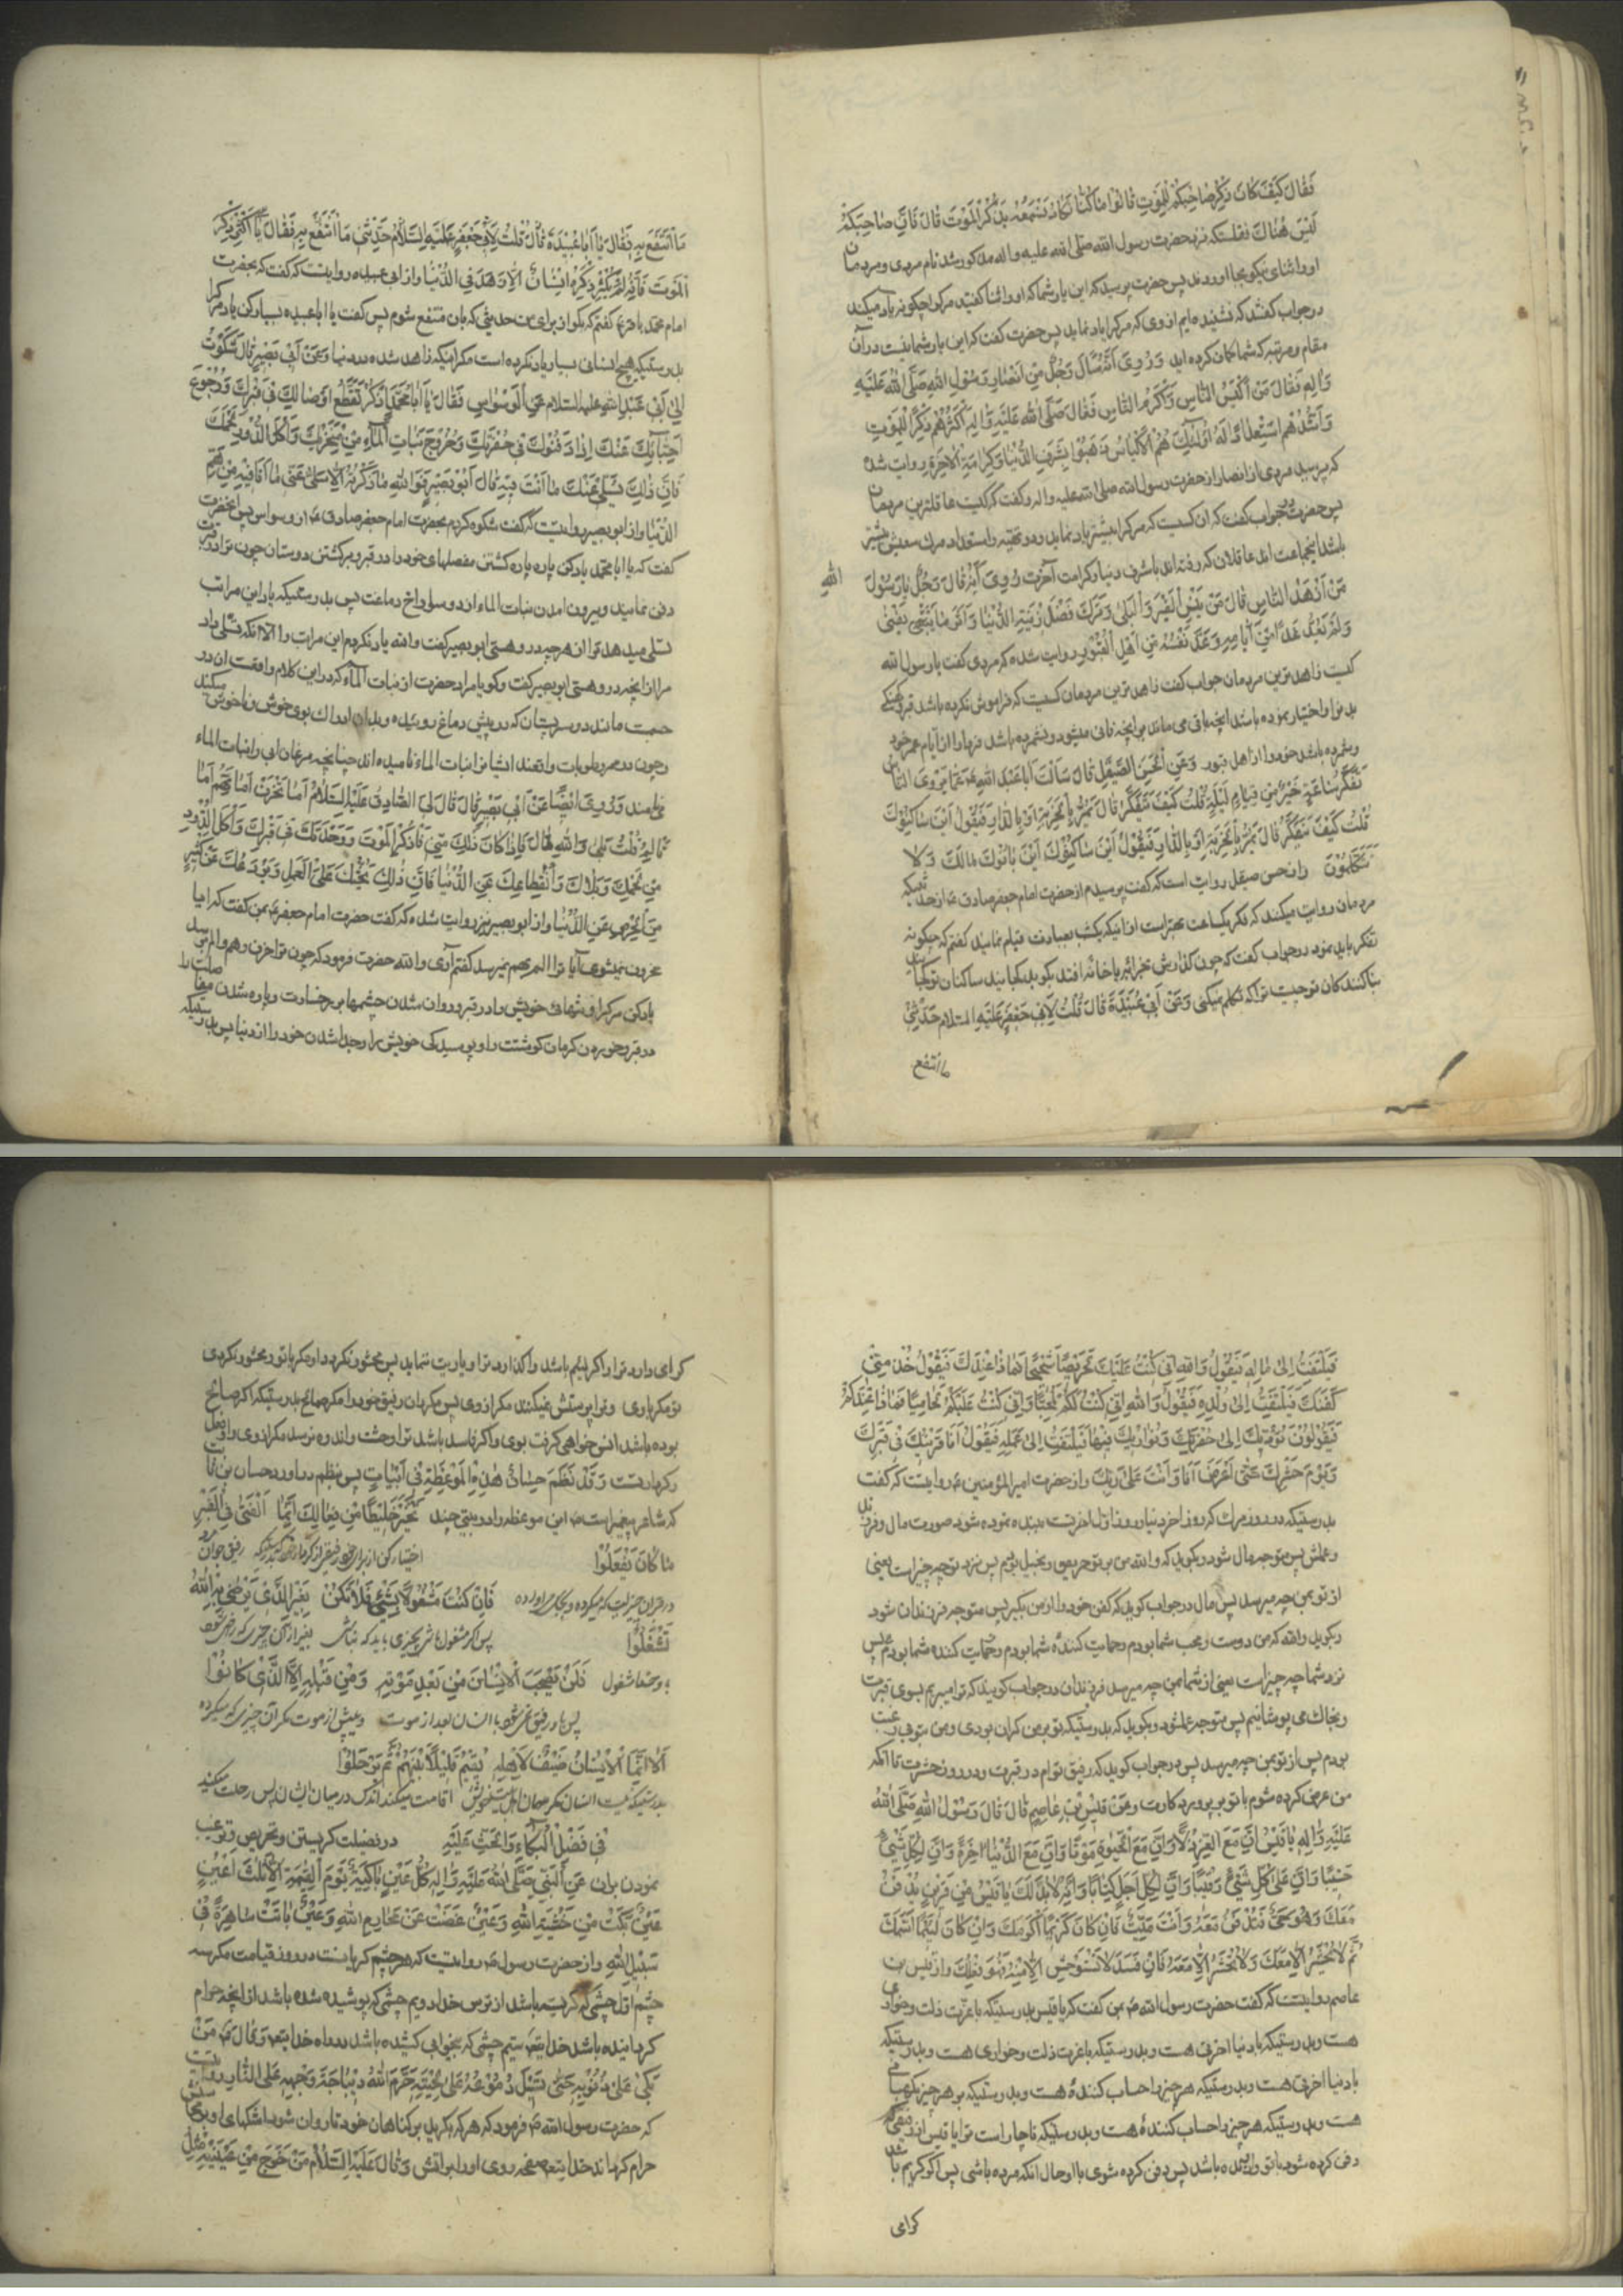 فَقَالَ كَيْفَ كَانَ ذِكْرُ صَاحِبِكُمْ لِلْمَوْتِ قَالُوا مَا كُنَّا نَكَادُ نَسْمَعُهُ يَذْكُرُ الْمَوْتَ قَالَ فَاِنَّ صَاحِبَكُمْ
لَيْسَ هُنَاكَ نقلست که نزد حضرت رسول الله صلى الله عليه واله مذکور شد نام مردی ومردمان
اورا ثنای نیکو بجا اوردند پس حضرت پرسید که این یار شما که اورا ثنا گفتید مرک را چکونه یاد میکند
درجواب گفتند که نشنیده ایم از وی که مرک را یاد نماید پس حضرت گفت که این یار شما نیست در آن
مقام ومرتبه که شما گمان کرده اید وَرُوِیَ اَنَّهُ سَاَلَ رَجُلٌ مِنْ اَنْصَارِ رَسُولِ اللهِ صَلَّى اللهُ عَلَيْهِ
وَالِهِ فَقَالَ مَنْ اَكْيَسُ النَّاسِ وَاَكْرَمُ النَّاسِ فَقَالَ صَلَّى اللهُ عَلَيْهِ وَالِهِ اَكْثَرُهُمْ ذِكْرًا لِلْمَوْتِ
وَاَشَدُّهُمْ اسْتِعْدَادًا لَهُ اُولٰئِكَ هُمُ الْاَكْيَاسُ ذَهَبُوا بِشَرَفِ الدُّنْيَا وَكَرَامَةِ الْاٰخِرَةِ روایت شده
که پرسید مردی از انصار از حضرت رسول الله صلى الله عليه واله وگفت که کیست عاقلترین مردمان
پس حضرت درجواب گفت که ان کسیست که مرک را بیشتر یاد نماید ودر تهیه واستعداد مرک سعیش بیشتر
باشد اینجماعت اند عاقلان که رفته اند باشرف دنیا وکرامت آخرت رُوِیَ اَنَّهُ قَالَ رَجُلٌ یَا رَسُولَ
الله
مَنْ اَزْهَدُ النَّاسِ قَالَ مَنْ لَمْ يَنْسَ الْقَبْرَ وَالْبِلَى وَتَرَكَ فَضْلَ زِينَةِ الدُّنْيَا وَاٰثَرَ مَا يَبْقَى عَلَى مَا يَفْنَى
وَلَمْ يَعُدَّ غَدًا مِنْ اَيَّامِهِ وَعَدَّ نَفْسَهُ مِنْ اَهْلِ الْقُبُورِ روایت شده که مردی گفت یا رسول الله
کیست زاهد ترین مردمان جواب گفت زاهد ترین مردمان کسیست که فراموش نکرده باشد قبر
باشد انچه باقی می ماند بر انچه فانی میشود ونشمرده باشد فردا را از ایام عمر خود
وشمرده باشد خود را از اهل قبور وَعَنِ الْحَسَنِ الصَّيْقَلِ قَالَ سَاَلْتُ اَبَا عَبْدِ اللهِ عَمَّا يَرْوِى النَّاسُ
تَفَكُّرُ سَاعَةٍ خَيْرٌ مِنْ قِيَامِ لَيْلَةٍ قُلْتُ كَيْفَ يَتَفَكَّرُ قَالَ يَمُرُّ بِالْخَرِبَةِ اَوْ بِالدَّارِ فَيَقُولُ اَيْنَ سَاكِنُوكِ
قُلْتُ كَيْفَ يَتَفَكَّرُ قَالَ يَمُرُّ بِالْخَرِبَةِ اَوْ بِالدَّارِ فَيَقُولُ اَيْنَ سَاكِنُوكِ اَيْنَ بَانُوكِ مَالَكِ لَا
تَتَكَلَّمِينَ واز حسن صیقل روایت است که گفت پرسیدم از حضرت امام جعفر صادق ع از حدیثیکه
مردمان روایت میکنند که فکر یکساعت بهتر است از اینکه یکشب بعبادت قیام نمایند گفتم که چکونه
تفکر باید نمود درجواب گفت که چون گذارش بخرابه یا خانه افتد بگوید کجایند ساکنان تو
بناکنندکان تو چیست ترا که تکلم نمیکنی وَعَنْ اَبِى عُبَيْدَةَ قَالَ قُلْتُ لِاَبِى جَعْفَرٍ عَلَيْهِ السَّلَامُ حَدِّثْنِى
ما انتفع
مَا اَنْتَفِعُ بِهِ فَقَالَ يَا اَبَا عُبَيْدَةَ قَالَ قُلْتُ لِاَبِى جَعْفَرٍ عَلَيْهِ السَّلَامُ حَدِّثْنِى مَا اَنْتَفِعُ بِهِ فَقَالَ يَا اَكْثِرْ ذِكْرَ
الْمَوْتِ فَاِنَّهُ لَمْ يُكْثِرْ ذِكْرَهُ اِنْسَانٌ اِلَّا زَهِدَ فِى الدُّنْيَا واز ابی عبیده روایتست که گفت که بحضرت
امام محمد باقر ع گفتم که بگو از برای من حدیثی که بان منتفع شوم پس گفت یا ابا عبیده بسیار کن یاد مرک را
بدرستیکه هیچ انسانی بسیار یاد نکرده است مرک را مگر که زاهد شده در دنیا وَعَنْ اَبِى بَصِيرٍ قَالَ شَكَوْتُ
اِلَى اَبِى عَبْدِ اللهِ عليه السلام عَنِ الْوَسْوَاسِ فَقَالَ يَا اَبَا مُحَمَّدٍ اُذْكُرْ تَقَطُّعَ اَوْصَالِكَ فِى قَبْرِكَ وَرُجُوعَ
اَحِبَّائِكَ عَنْكَ اِذَا دَفَنُوكَ فِى حُفْرَتِكَ وَخُرُوجَ بَنَاتِ الْمَاءِ مِنْ مَنْخِرَيْكَ وَاَكْلَ الدُّودِ لَحْمَكَ
فَاِنَّ ذٰلِكَ يُسَلِّى عَنْكَ مَا اَنْتَ فِيهِ قَالَ اَبُو بَصِيرٍ فَوَاللهِ مَا ذَكَرْتُهُ اِلَّا سَلَّى عَنِّى مَا اَنَا فِيهِ مِنْ هَمِّ
الدُّنْيَا واز ابوبصیر روایتست که گفت شکوه کردم بحضرت امام جعفر صادق ع از وسواس پس انحضرت
گفت که یا ابا محمد یاد کن پاره پاره گشتن مفصلهای خود را در قبر وبرگشتن دوستان چون ترا در قبر
دفن نمایند وبیرون امدن بنات الماء از دو سوراخ دماغت پس بدرستیکه یاد این مراتب
تسلی میدهد ترا از هرچه در وهستی ابوبصیر گفت والله یاد نکردم این مراتب را الا انکه تسلی داد
مرا از انچه در وهستم ابوبصیر گفت وگویا مراد حضرت از بنات الماء که در این کلام واقعست ان دو
جسمست مانند دو سر پستان که در پیش دماغ روئیده وبدان ادراک بوی خوش وناخوش میکنند
وچون در ممر رطوبات واقعند ایشانرا بنات الماء نامیده اند چنانچه مرغان ابی را بنات الماء
می نامند وَرُوِیَ اَيْضًا عَنْ اَبِى بَصِيرٍ قَالَ قَالَ لِىَ الصَّادِقُ عَلَيْهِ السَّلَامُ اَمَا تَحْزَنُ اَمَا تَهْتَمُّ اَمَا
تَاْلَمُ قُلْتُ بَلَى وَاللهِ قَالَ فَاِذَا كَانَ ذٰلِكَ مِنْكَ فَاذْكُرِ الْمَوْتَ وَوَحْدَتَكَ فِى قَبْرِكَ وَاَكْلَ الدُّودِ
مِنْ لَحْمِكَ وَبَلَاكَ وَانْقِطَاعَكَ عَنِ الدُّنْيَا فَاِنَّ ذٰلِكَ يَحُثُّكَ عَلَى الْعَمَلِ وَيَرْدَعُكَ عَنْ كَثِيرٍ
مِنَ الْحِرْصِ عَنِ الدُّنْيَا واز ابوبصیر نیز روایت شده که گفت حضرت امام جعفر ع بمن گفت که ایا
محزون نمیشوی آیا ترا الم وهم نمیرسد گفتم آری والله حضرت فرمود که چون ترا حزن وهم والم برسد
یاد کن مرک را وتنهائی خویش را در قبر وروان شدن چشمها بر رخسارت وپاره شدن مفاصلت را
در قبر وخوردن کرمان گوشتت را وپوسیدکی خویش را وجدا شدن خود را از دنیا پس بدرستیکه
فَيَلْتَفِتُ اِلَى مَالِهِ فَيَقُولُ وَاللهِ اِنِّى كُنْتُ عَلَيْكَ لَحَرِيصًا شَحِيحًا فَمَاذَا عِنْدَكَ فَيَقُولُ خُذْ مِنِّى
كَفَنَكَ فَيَلْتَفِتُ اِلَى وُلْدِهِ فَيَقُولُ وَاللهِ اِنِّى كُنْتُ لَكُمْ لَمُحِبًّا وَاِنِّى كُنْتُ عَلَيْكُمْ لَحَامِيًا فَمَاذَا عِنْدَكُمْ
فَيَقُولُونَ نُؤَدِّيكَ اِلَى حُفْرَتِكَ وَنُوَارِيكَ فِيهَا فَيَلْتَفِتُ اِلَى عَمَلِهِ فَيَقُولُ اَنَا قَرِينُكَ فِى قَبْرِكَ
وَيَوْمَ حَشْرِكَ حَتَّى اُعْرَضَ اَنَا وَاَنْتَ عَلَى رَبِّكَ واز حضرت امیر المؤمنین ع روایتست که گفت
بدرستیکه در روز مرک که روز اخر دنیا وروز اول اخرتست بنده نموده شود صورت مال وفرزند
وعملش پس متوجه مال شود وبگوید که والله من بر تو حریص وبخیل بودم پس نزد تو چه چیز است یعنی
از تو بمن چه میرسد پس مال درجواب گوید که کفن خود را از من بگیر پس متوجه فرزندان شود
وبگوید والله که من دوست ومحب شما بودم وحمایت کنندهٔ شما بودم پس
نزد شما چه چیز است یعنی از شما بمن چه میرسد فرزندان درجواب گویند که ترا میبریم بسوی قبرت
وبخاک می پوشانیم پس متوجه عمل شود وبگوید که بدرستیکه تو بر من گران بودی ومن بتو بی رغبت
بودم پس از تو بمن چه میرسد پس درجواب گوید که رفیق توام در قبرت ودر روز حشرت تا انکه
من عرض کرده شوم با تو بر پروردکارت وعَنْ قَيْسِ بْنِ عَاصِمٍ قَالَ قَالَ رَسُولُ اللهِ صَلَّى اللهُ
عَلَيْهِ وَالِهِ يَا قَيْسُ اِنَّ مَعَ الْعِزِّ ذُلًّا وَاِنَّ مَعَ الْحَيٰوةِ مَوْتًا وَاِنَّ مَعَ الدُّنْيَا اٰخِرَةً وَاِنَّ لِكُلِّ شَيْءٍ
حَسِيبًا وَاِنَّ عَلَى كُلِّ شَيْءٍ رَقِيبًا وَاِنَّ لِكُلِّ اَجَلٍ كِتَابًا وَاِنَّهُ لَابُدَّ لَكَ يَا قَيْسُ مِنْ قَرِينٍ يُدْفَنُ
مَعَكَ وَهُوَ حَىٌّ وَتُدْفَنُ مَعَهُ وَاَنْتَ مَيِّتٌ فَاِنْ كَانَ كَرِيمًا اَكْرَمَكَ وَاِنْ كَانَ لَئِيمًا اَسْلَمَكَ
ثُمَّ لَا يُحْشَرُ اِلَّا مَعَكَ وَلَا تُحْشَرُ اِلَّا مَعَهُ فَاِنْ فَسَدَ لَا تَسْتَوْحِشْ اِلَّا مِنْهُ وَهُوَ فِعْلُكَ واز قیس بن
عاصم روایتست که گفت حضرت رسول الله ص بمن گفت که یا قیس بدرستیکه با عزت ذلت وخواری
هست وبدرستیکه با دنیا اخرتی هست وبدرستیکه با عزت ذلت وخواری هست وبدرستیکه
با دنیا اخرتی هست وبدرستیکه هر چیز را حساب کنندهٔ هست وبدرستیکه بر هر چیز نکهبانی
هست وبدرستیکه هر چیز را حساب کنندهٔ هست وبدرستیکه ناچار است ترا یا قیس از رفیقی که
دفن کرده شود با تو واو زنده باشد پس دفن کرده شوی با او حال انکه مرده باشی پس اگر کریم باشد
کرامی
کرامی دارد ترا واگر لئیم باشد واگذارد ترا ویاریت ننماید پس محشور نگردد او مگر با تو ومحشور نکردی
تو مگر با وی وترا پرسش نمیکنند مگر از وی پس مگردان رفیق خود را مگر صالح بدرستیکه اگر صالح
بوده باشد انس خواهی گرفت بوی واگر فاسد باشد ترا وحشت واندوه نرسد مگر از وی واو فعل
وکردار تست وَقَدْ نَظَمَ حَسَّانُ هٰذِهِ الْمَوْعِظَةَ فِى اَبْيَاتٍ پس بنظم در اورد حسان بن ثابت
که شاعر پیغمبر است ص این موعظه را در بیتی چند تَخَيَّرْ خَلِيطًا مِنْ فِعَالِكَ اِنَّمَا اَلْفَتَى فِى الْقَبْرِ
مَا كَانَ يَفْعَلُوا اختیار کن از برای خود رفیقی از کردار خود بدرستیکه رفیق جوان
در قبر ان چیز است که میکرده وبجای می اورده فَاِنْ كُنْتَ مَشْغُولًا بِشَيْءٍ فَلَا تَكُنْ بِغَيْرِ الَّذِى يَرْضَى بِهِ اللهُ
تَشْغَلُوا پس اگر مشغول باشی بچیزی باید که نباشی بغیر از آن چیزی که راضی شود
مشغول فَلَنْ يَصْحَبَ الْاِنْسَانَ مِنْ بَعْدِ مَوْتِهِ وَمِنْ قَبْلِهِ اِلَّا الَّذِى كَانُوا
پس یار ورفیق نمی شود با انسان بعد از موت وپیش از موت مگر آن چیزی که میکرده
اَلَا اِنَّمَا الْاِنْسَانُ ضَيْفٌ لِاَهْلِهِ يُقِيمُ قَلِيلًا بَيْنَهُمْ ثُمَّ يَرْحَلُوا
بدرستیکه نیست انسان مگر مهمان اهل خویش اقامت میکند اندکی در میان ایشان پس رحلت میکند
فِى فَضْلِ الْبُكَاءِ وَالْحَثِّ عَلَيْهِ در فضیلت گریستن وتحریص وترغیب
نمودن بران عَنِ النَّبِىِّ صَلَّى اللهُ عَلَيْهِ وَالِهِ كُلُّ عَيْنٍ بَاكِيَةٌ يَوْمَ الْقِيٰمَةِ اِلَّا ثَلَاثَ اَعْيُنٍ
عَيْنٌ بَكَتْ مِنْ خَشْيَةِ اللهِ وَعَيْنٌ غَضَّتْ عَنْ مَحَارِمِ اللهِ وَعَيْنٌ بَاتَتْ سَاهِرَةً فِى
سَبِيلِ اللهِ واز حضرت رسول ص روایتست که هر چشم گریانست در روز قیامت مگر سه
چشم اول چشمی که گریسته باشد از ترس خدا دویم چشمی که پوشیده شده باشد از انچه حرام
گردانیده باشد خدا سیم چشمی که بیخوابی کشیده باشد در راه خدا وَقَالَ ص مَنْ
بَكَى عَلَى ذُنُوبِهِ حَتَّى تَسِيلَ دُمُوعُهُ عَلَى لِحْيَتِهِ حَرَّمَ اللهُ دِيبَاجَةَ وَجْهِهِ عَلَى النَّارِ روایتست
که حضرت رسول الله ص فرمود که هر که بگرید بر گناهان خود تا روان شود اشکهای او بر ریش
حرام گرداند خدا صفحه روی اورا بر اتش وَقَالَ عَلَيْهِ السَّلَامُ مَنْ خَرَجَ مِنْ عَيْنَيْهِ مِثْلُ